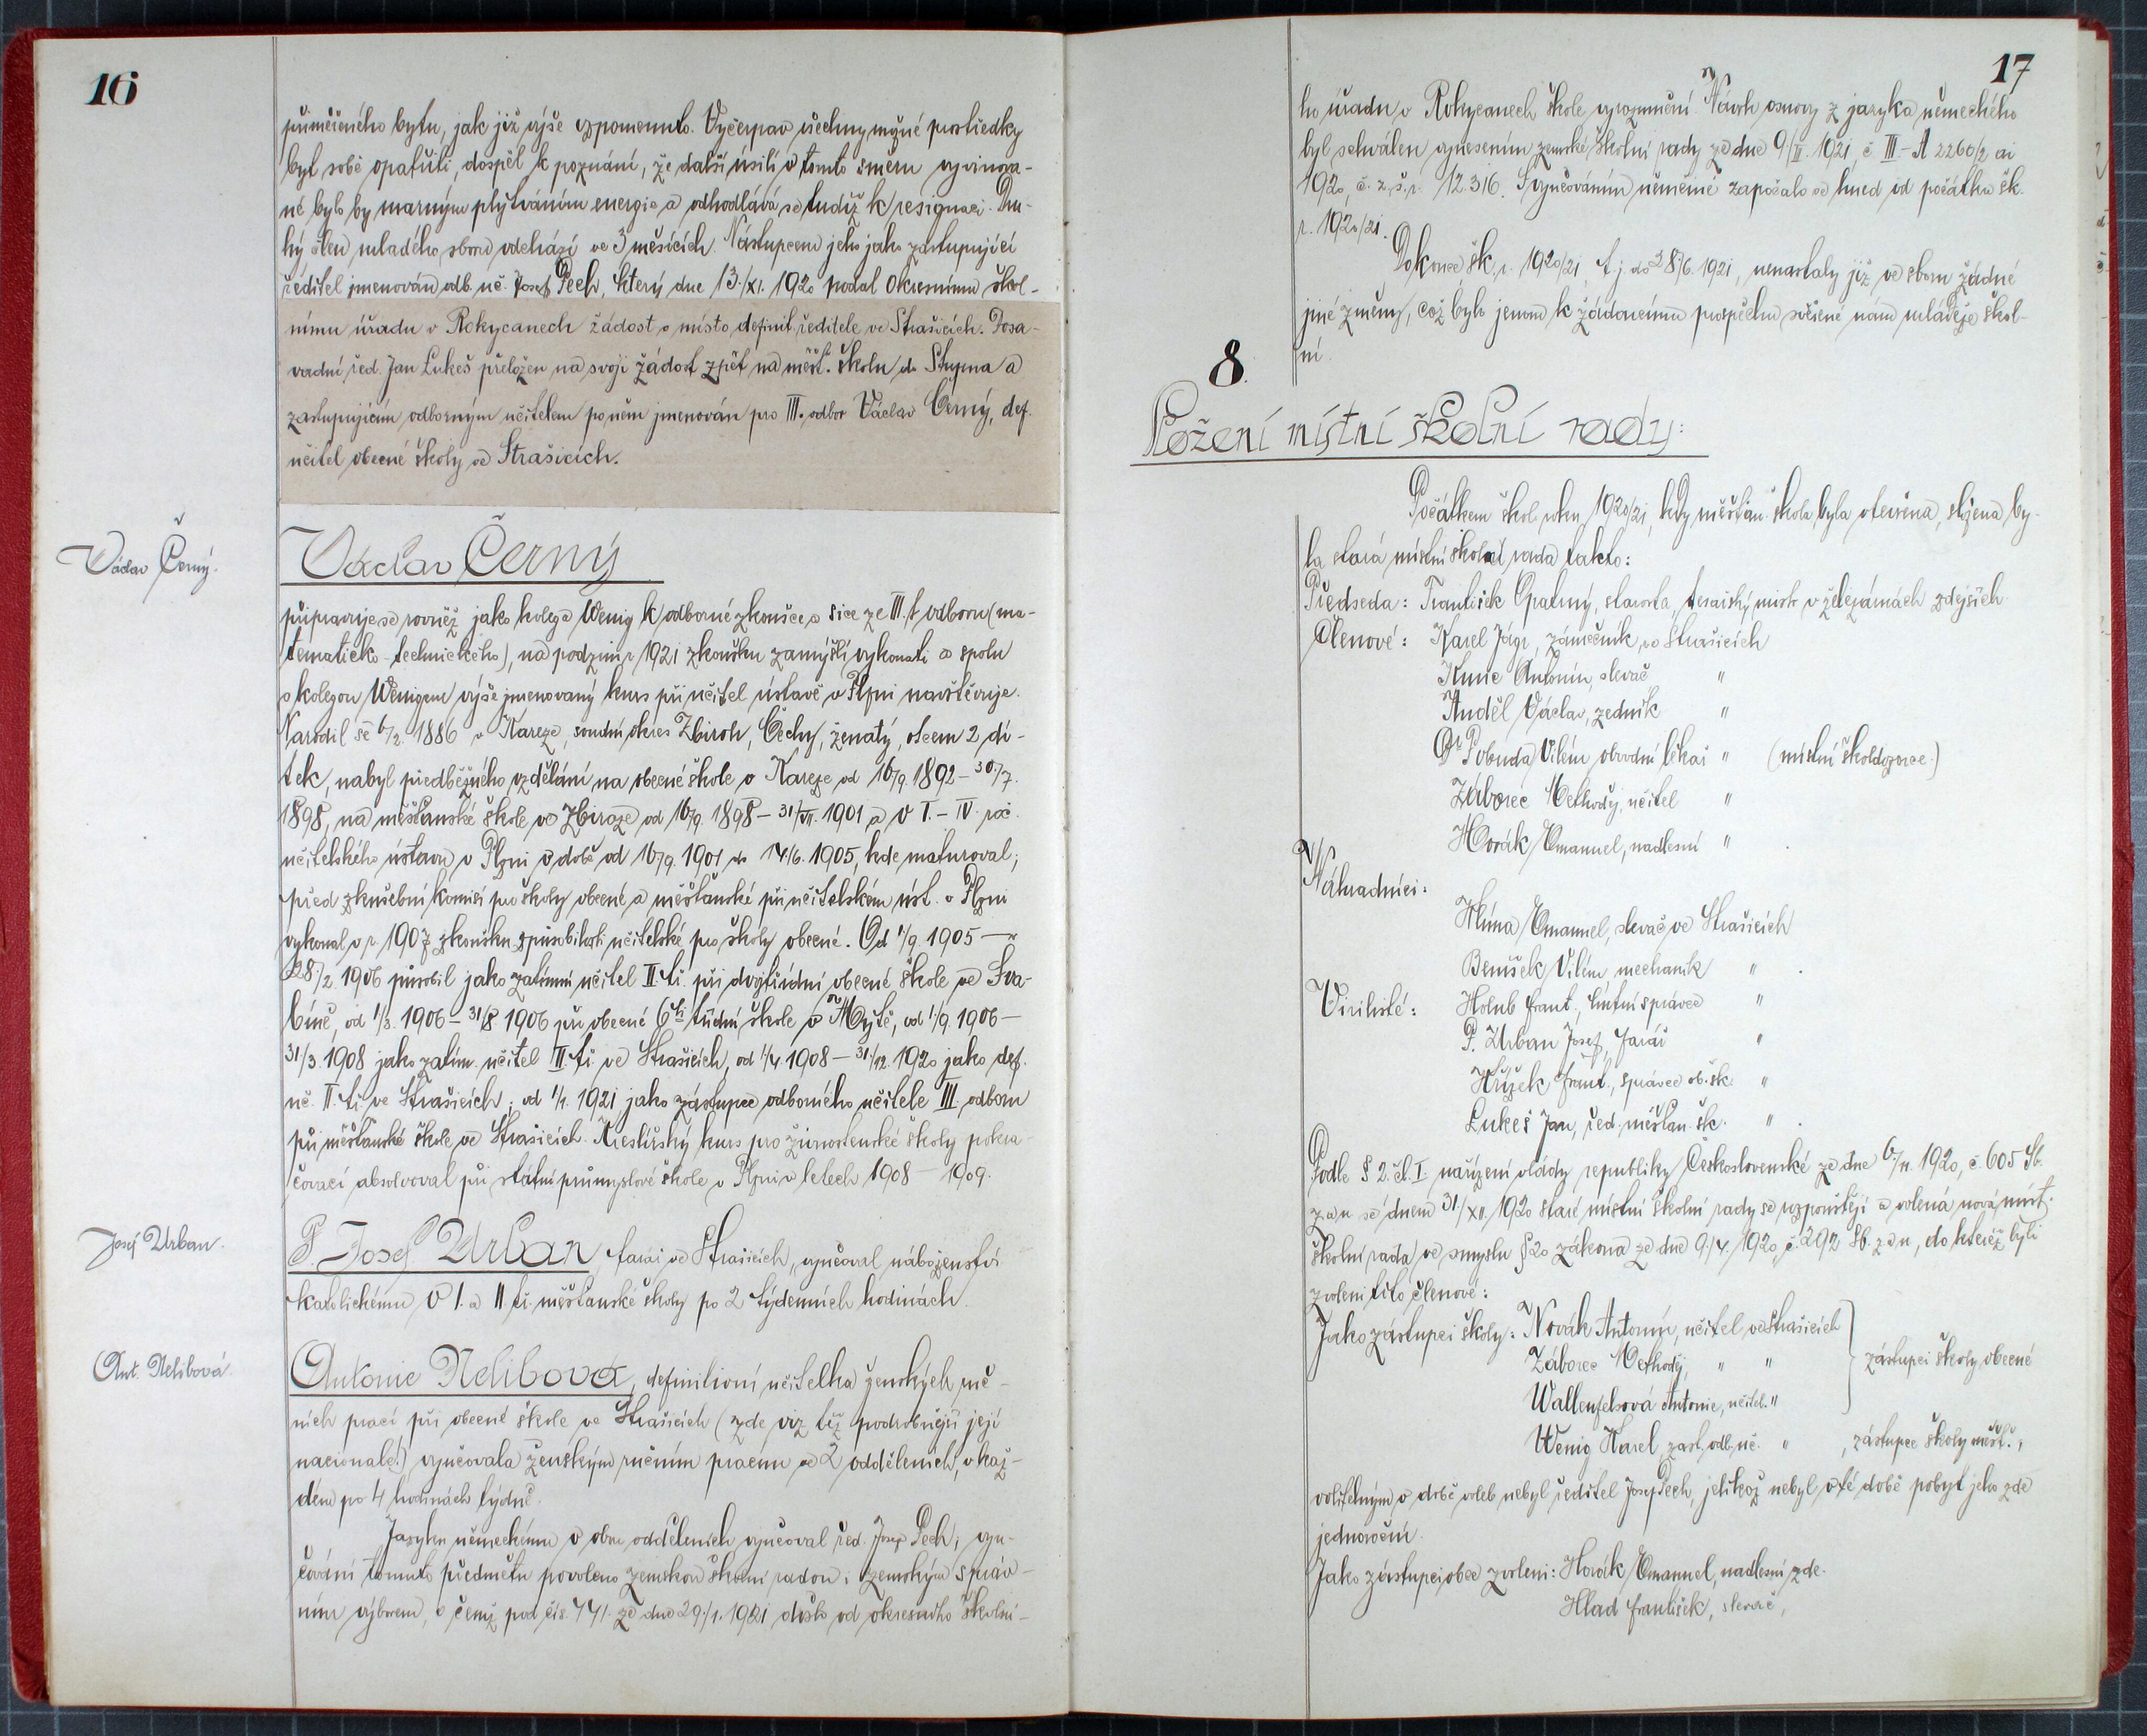 16
přiměřeného bytu, jak již výše vzpomenuto. Vyčerpav všechny možné prostředky
byt sobě opatřiti, dospěl k poznání, že další usilí v tomto směru vyvinova-
né bylo by marným plýtváním energie a odhodlává se tudíž k resignaci. Dru-
hý člen mladého sboru odchází ve 3 měsících. Nástupcem jeho jako zastupující
ředitel jmenován odb. uč. Josef Pech, který dne 13./XI. 1920 podal Okresnímu škol-
nímu úřadu v Rokycanech žádost o místo definit. ředitele ve Strašicích. Dosa-
vadní řed. Jan Lukeš přeložen na svoji žádost zpět na měšť. školu do Stupna a
zastupujícím odborným učitelem po něm jmenován pro III. odbor Václav Černý, def.
učitel obecné školy ve Strašicích.
Václav Černý.
Václav Černý
připravuje se rovněž jako kolega Wenig k odborné zkoušce a sice ze III.t. odboru (ma-
tematicko-technického), na podzim r. 1921 zkoušku zamýšlí vykonati a spolu
s kolegou Wenigem výše jmenovaný kurs při učitel. ústavě v Plzni navštěvuje.
Narodil se 6/2. 1886 v Kareze, soudní okres Zbiroh, Čechy, ženatý, otcem 2 dí-
tek, nabyl předběžného vzdělání na obecné škole v Kareze od 16/9. 1892 – 30./7.
1898, na měšťanské škole ve Zbiroze od 16/9. 1898 – 31/VII. 1901 a v I. – IV. roč.
učitelského ústavu v Plzni v době od 16/9. 1901 do 14./6. 1905, kde maturoval;
před zkušební komisí pro školy obecné a měšťanské při učitelském úst. v Plzni
vykonal v r. 1907 zkoušku způsobilosti učitelské pro školy obecné. Od 1/9. 1905 –
28./2. 1906 působil jako zatimní učitel II. tř. při dvojtřídní obecné škole ve Sva-
bíně, od 1/3. 1906 – 31/8 1906 při obecné 6ti třídní škole v Mýtě, od 1/9. 1906 –
31/3. 1908 jako zatím. učitel II. tř. ve Strašicích, od 1/4. 1908 – 31/12. 1920 jako def.
uč. II. tř. ve Strašicích; od 1/1. 1921 jako zástupce odborného učitele III. odboru
při měšťanské škole ve Strašicích. Kreslířský kurs pro živnostenské školy pokra-
čovací absolvoval při státní průmyslové škole v Plzni v letech 1908 – 1909.
Josef Urban.
P. Josef Urban, farář ve Strašicích, vyučoval náboženství
katolickému v I. a II. tř. měšťanské školy po 2 týdenních hodinách.
Ant. Nelibová.
Antonie Nelibová, definitivní učitelka ženských ruč-
ních prací při obecné škole ve Strašicích (zde viz též podrobnější její
nacionale!) vyučovala ženským ručním pracím ve 2 odděleních, v kaž-
dém po 4 hodinách týdně.
Jazyku německému v obou odděleních vyučoval řed. Josef Pech; vyu-
čování tomuto předmětu povoleno zemskou školní radou i zemským správ-
ním výborem, o čemž pod čís. 441. ze dne 29./1. 1921 došlo od okresního školní-
17
ho úřadu v Rokycanech škole vyrozumění. Návrh osnovy z jazyka německého
byl schválen vynesením zemské školní rady ze dne 9./II. 1921, č. III.–A 2260/2 ai
1920, č. z. š. r. 12.316. S vyučováním němčině započalo se hned od počátku šk.
r. 1920/21.
Do konce šk. r. 1920/21, t. j. do 28./6. 1921, nenastaly již ve sboru žádné
jiné změny, což bylo jenom k žádoucímu prospěchu svěřené nám mládeže škol-
ní.
8.
Složení místní školní rady:
Počátkem škol. roku 1920/21, kdy měšťan. škola byla otevřena, složena by-
la stará místní školní rada takto:
Předseda: František Opatrný, starosta, tesařský mistr v železárnách zdejších
Členové: Karel Jágr, zámečník, ve Strašicích
Antonín, slevač "
Anděl Václav, zedník "
Dr. Pobuda Vilém obvodní lékař " (místní školdozorce.)
Záborec Methoděj, učitel "
Horák Emanuel, nadlesní "
Náhradníci:
Klíma Emanuel, slevač ve Strašicích
Benišek Vilém mechanik "
Virilisté: Holub Frant., hutní správce "
P. Urban Josef, farář "
Hřížek Frant., správce ob. šk. "
Lukeš Jan, řed. měšťan. šk. "
Podle § 2. čl. I. nařízení vlády republiky Československé ze dne 6./11. 1920, č. 605 Sb.
z. a n. se dnem 31./XII. 1920 staré místní školní rady se rozpouštějí a volena nová míst.
školní rada ve smyslu § 20 zákona ze dne 9./4. 1920, č. 292 Sb. z. a n., do kteréž byli
zvoleni tito členové:
Jako zástupci školy: Novák Antonín, učitel ve Strašicích
Záborec Methoděj, " " zástupci školy obecné
Wallenfelsová Antonie, učitel. "
Wenig Karel, zast. odb. uč. " , zástupce školy měšť.,
volitelným v době voleb nebyl ředitel Josef Pech, jelikož nebyl v té době pobyt jeho zde
jednoroční.
Jako zástupci obce zvoleni: Horák Emanuel, nadlesní zde.
Hlad František, slevač,